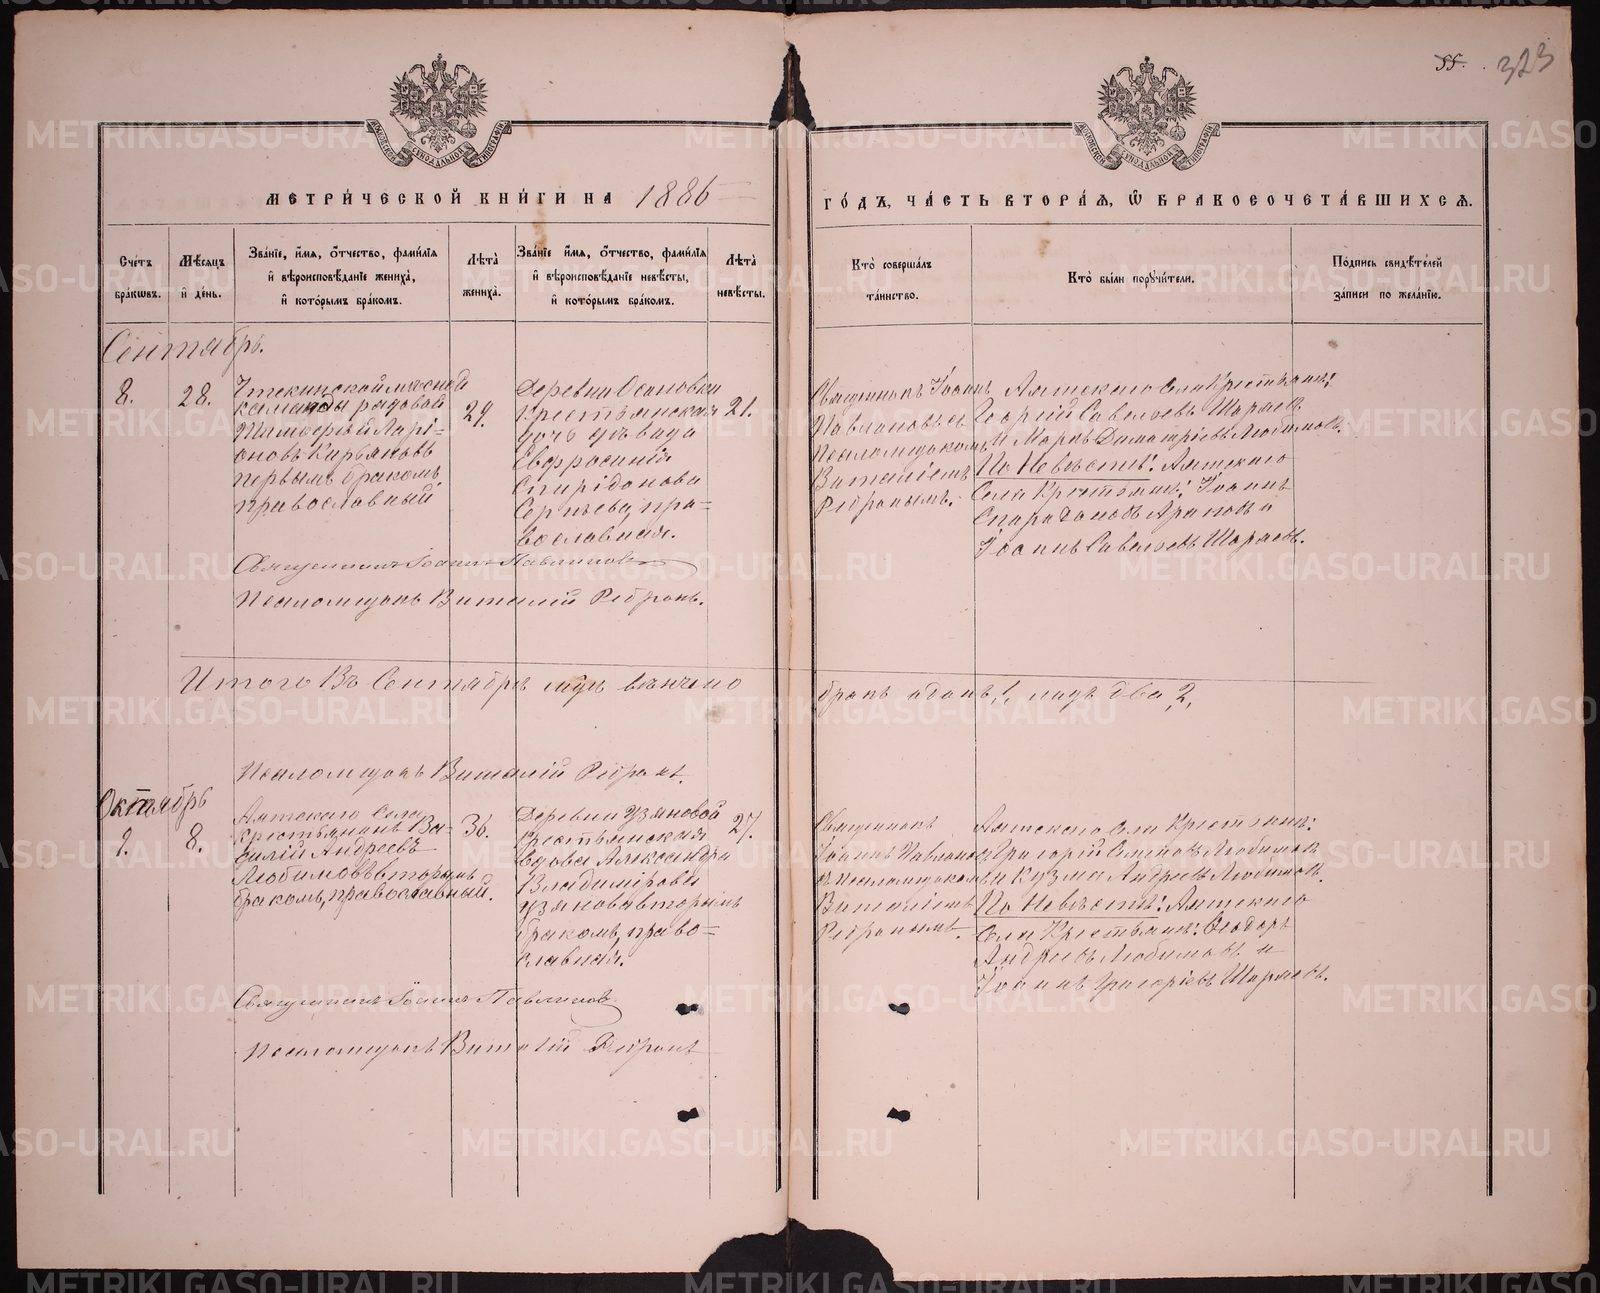 55.
323
МЕТРИЧЕСКОЙ КНИГИ НА 1886
ГОДЪ, ЧАСТЬ ВТОРАЯ, Ѡ БРАКОСОЧЕТАВШИХСЯ.
Счетъ браковъ.
Мѣсяцъ и день.
Званіе, имя, отчество, фамилія
и вѣроисповѣданіе жениха,
и которымъ бракомъ.
Лѣта жениха.
Званіе, имя, отчество, фамилія
и вѣроисповѣданіе невѣсты,
и которымъ бракомъ.
Лѣта невѣсты.
Кто совершалъ таинство.
Кто были поручители.
Подпись свидѣтелей
записи по желанію.
Сентябрь.
8.
28.
Уткинской мѣстной
команды рядовой
Тимофей Ларі-
оновъ Кирьяновъ
первымъ бракомъ,
православный
29.
Деревни Осиновки
крестьянская
дочь дѣвица
Евфросинія
Спиридонова
православная.
21.
Священникъ Іоаннъ
Павлиновъ съ
Псаломщикомъ
Виталіемъ
Ребринымъ.
Аятскаго Села Крестьяне:
Георгій Савельевъ Шараевъ
и Маркъ Димитріевъ Любимовъ.
По Невѣстѣ: Аятскаго
Села Крестьяне: Іоаннъ
Спиридоновъ и
Іоаннъ Савельевъ Шараевъ.
Священникъ Іоаннъ Павлиновъ
Псаломщикъ Виталій Ребринъ.
Итого Въ Сентябрѣ мцѣ вѣнчано
бракъ одинъ 1, лицъ два 2,
Псаломщикъ Виталій Ребринъ.
Октябрь
9.
8.
Аятскаго Села
крестьянинъ Ва-
силій Андреевъ
Любимовъ вторымъ
бракомъ, православный.
36.
Деревни Узяновой
крестьянская
вдова Александра
Владимірова
Узянова вторымъ
бракомъ, право-
славная.
27.
Священникъ
Іоаннъ Павлиновъ
съ Псаломщикомъ
Виталіемъ
Ребринымъ.
Аятскаго Села Крестьяне:
Григорій Любимовъ
и Кузма Андреевъ Любимовъ.
По Невѣстѣ: Аятскаго
Села Крестьяне: Ѳеодоръ
Андреевъ Любимовъ и
Іоаннъ Григорьевъ Шараевъ.
Священникъ Іоаннъ Павлиновъ
Псаломщикъ Виталій Ребринъ
METRIKI.GASO-URAL.RU